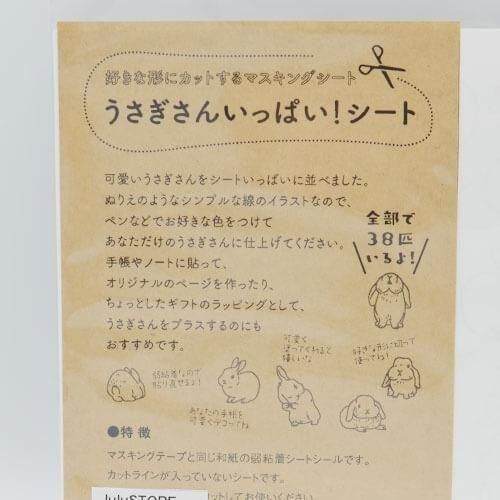 好きな形にカットするマスキングシート
うさぎさんいっぱい!シート
可愛いうさぎさんをシートいっぱいに並べました。
ぬりえのようなシンプルな線のイラストなので、
ペンなどでお好きな色をつけて
あなただけのうさぎさんに仕上げてください。
手帳やノートに貼って、
オリジナルのページを作ったり、
ちょっとしたギフトのラッピングとして、
うさぎさんをプラスするのにも
おすすめです。
全部で
38匹
いるよ!
弱粘着なので
貼り直せるよ!
あなたの手帳を
可愛くデコってね
可愛く
塗ってくれると
嬉しいな
好きな形に切って
使ってね!
●特徴
マスキングテープと同じ和紙の弱粘着シートシールです。
カットラインが入っていないシートです。
luluSTORE
ットしてお使いください